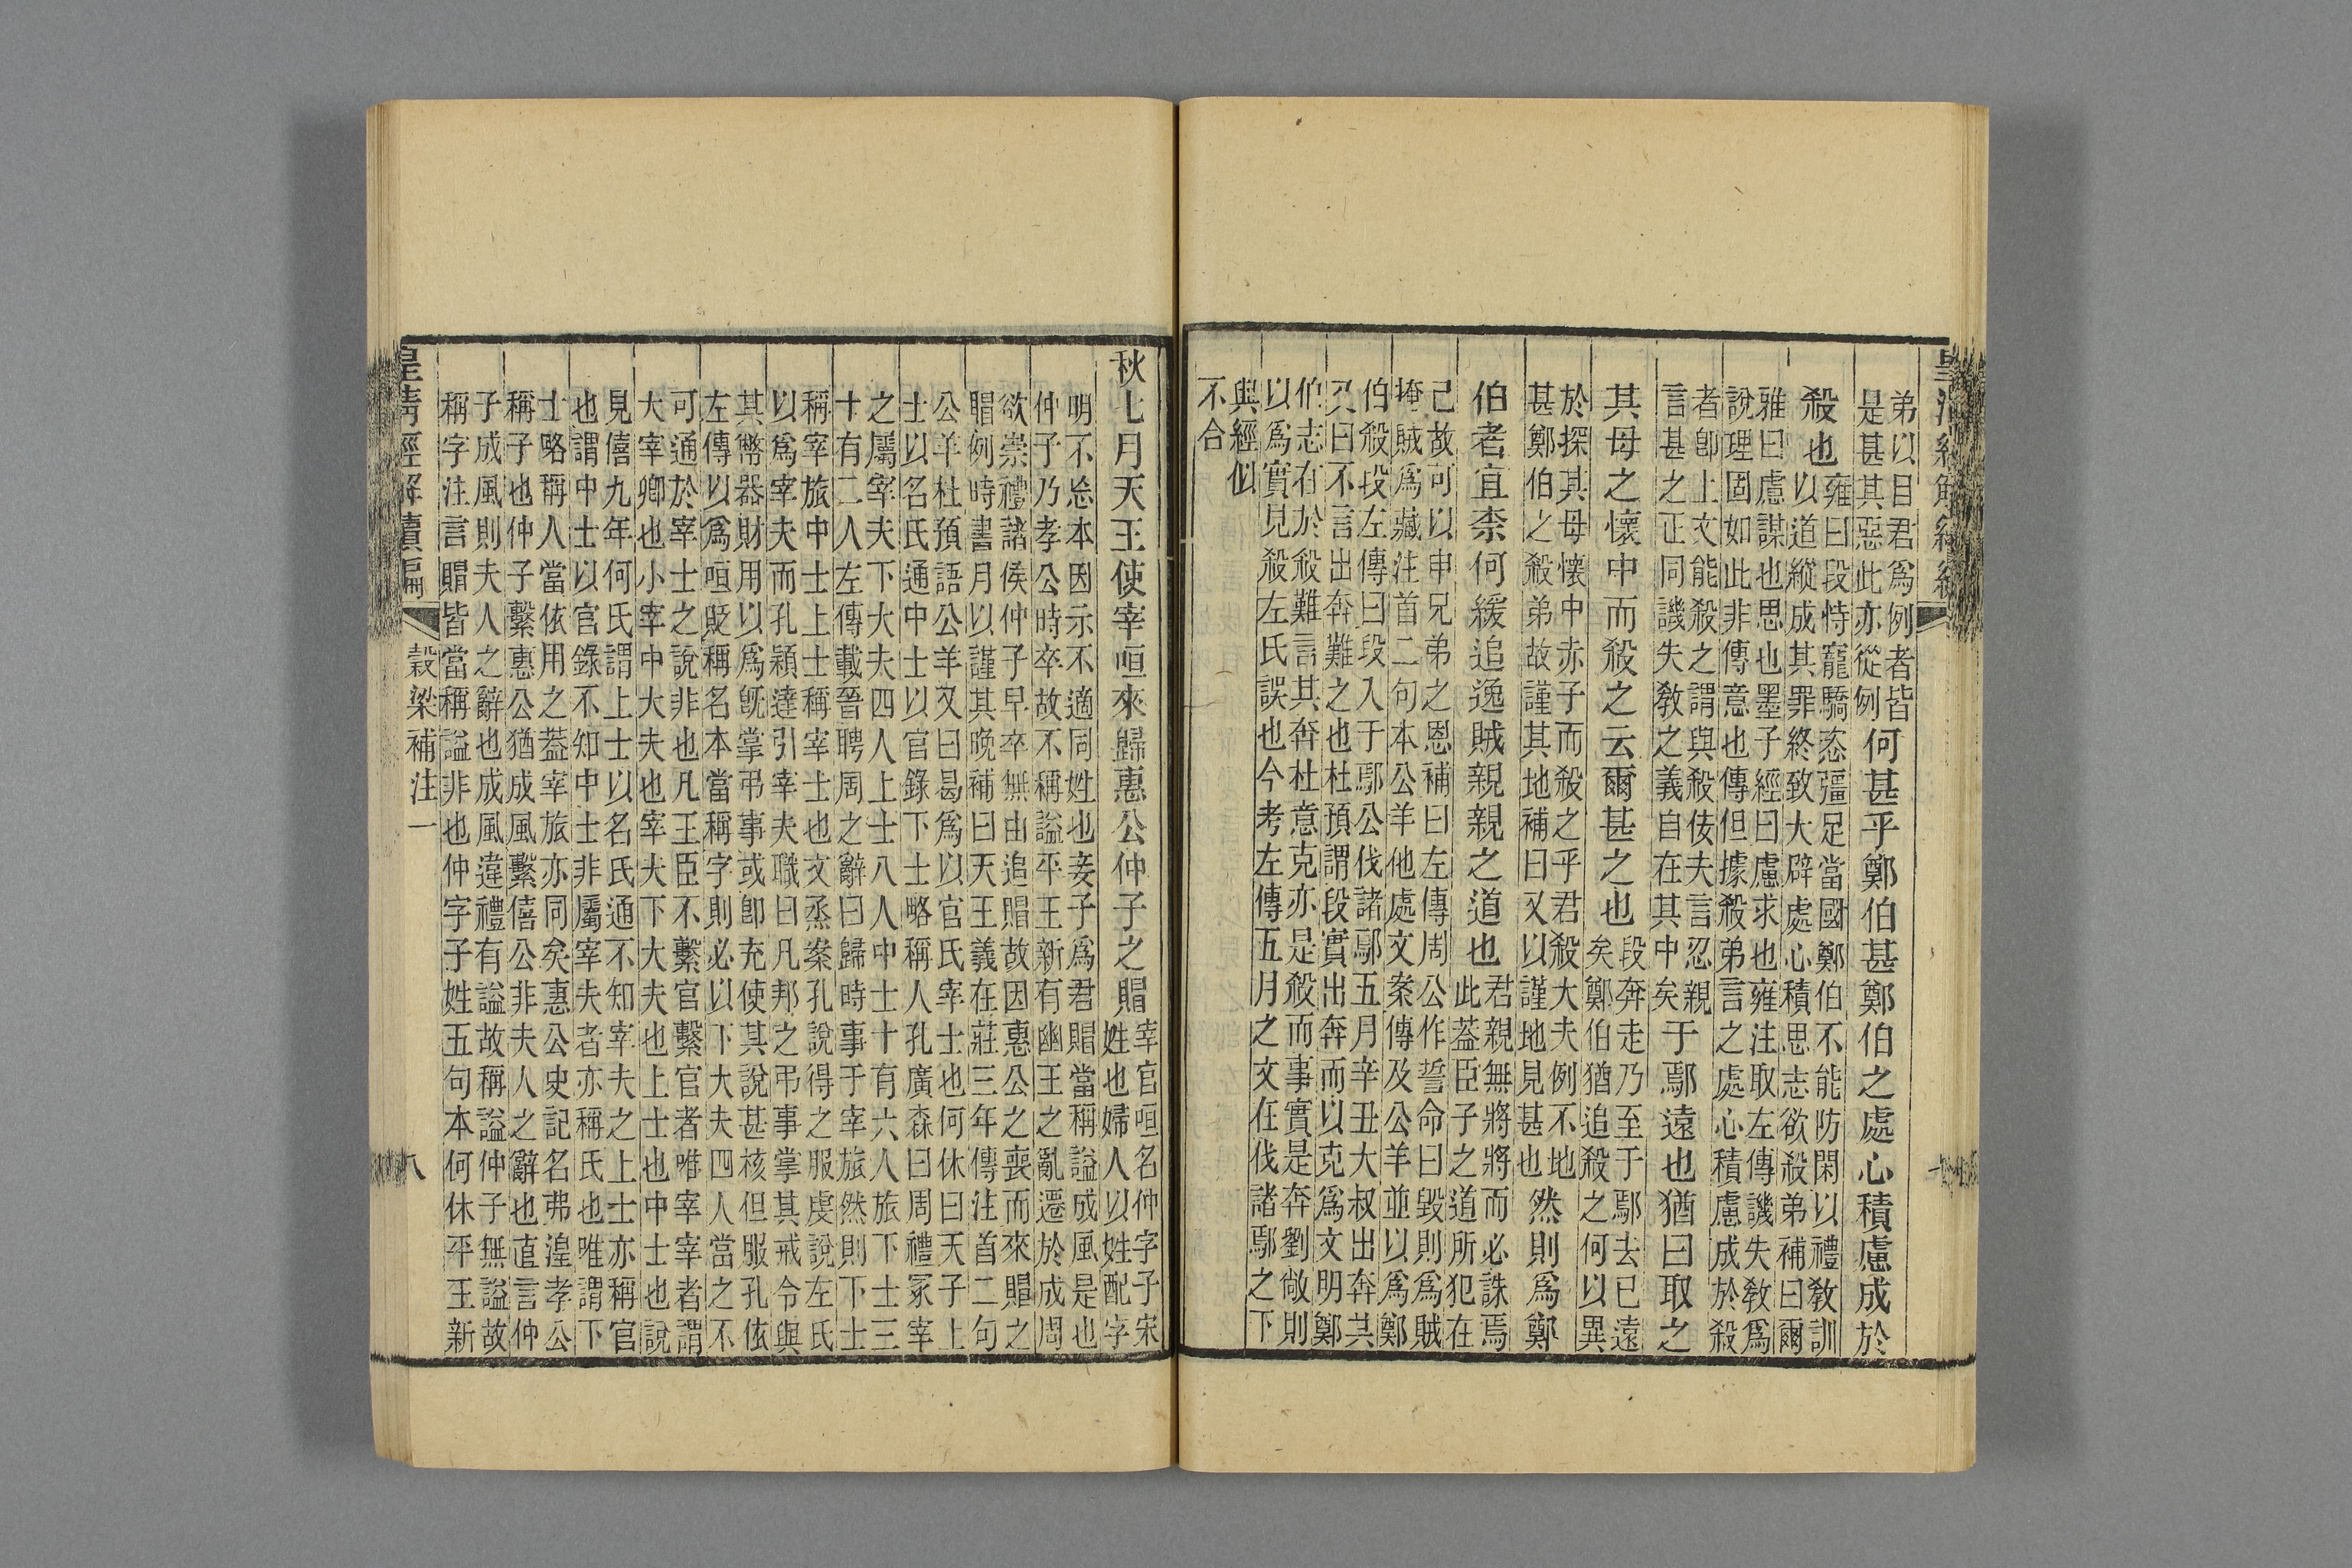 皇清經解續編
弟以目君爲例者皆
是甚其惡此亦從例
何甚乎鄭伯甚鄭伯之處心積慮成於
殺也
雍曰段恃寵驕恣彊足當國鄭伯不能防閑以禮教訓
以道縱成其罪終致大辟處心積思志欲殺弟補曰爾
雅曰慮謀也思也墨子經曰慮求也雍注取左傳譏失教爲
說理固如此非傳意也傳但據殺弟言之處心積慮成於殺
者卽上文能殺之謂與殺佞夫言忍親
言甚之正同譏失教之義自在其中矣
于鄢遠也猶曰取之
其母之懷中而殺之云爾甚之也
段奔走乃至于鄢去已遠
矣鄭伯猶追殺之何以異
於探其母懷中赤子而殺之乎君殺大夫例不地
甚鄭伯之殺弟故謹其地補曰又以謹地見甚也
然則爲鄭
伯者宜柰何緩追逸賊親親之道也
君親無將將而必誅焉
此蓋臣子之道所犯在
己故可以申兄弟之恩補曰左傳周公作誓命曰毀則爲賊
掩賊爲藏注首二句本公羊他處文案傳及公羊並以爲鄭
伯殺段左傳曰段入于鄢公伐諸鄢五月辛丑大叔出奔其
又曰不言出奔難之也杜預謂段實出奔而以克爲文明鄭
伯志在於殺難言其奔杜意克亦是殺而事實是奔劉敞則
以爲實見殺左氏誤也今考左傳五月之文在伐諸鄢之下
與經似
不合
秋七月天王使宰咺來歸惠公仲子之賵
宰官咺名仲字子宋
姓也婦人以姓配字
明不忩本因示不適同姓也妾子爲君賵當稱諡成風是也
仲子乃孝公時卒故不稱諡平王新有幽王之亂遷於成周
欲崇禮諸侯仲子早卒無由追賵故因惠公之喪而來賵之
賵例時書月以謹其晚補曰天王義在莊三年傳注首二句
公羊杜預語公羊又曰曷爲以官氏宰士也何休曰天子上
士以名氏通中士以官錄下士略稱人孔廣森曰周禮冢宰
之屬宰夫下大夫四人上士八人中士十有六人旅下士三
十有二人左傳載晉聘周之辭曰歸時事于宰旅然則下士
稱宰旅中士上士稱宰士也文烝案孔說得之服虔說左氏
以爲宰夫而孔穎達引宰夫職曰凡邦之弔事掌其戒令與
其幣器財用以爲旣掌弔事或卽充使其說甚核但服孔依
左傳以爲咺貶稱名本當稱字則必以下大夫四人當之不
可通於宰士之說非也凡王臣不繫官繫官者唯宰宰者謂
大宰卿也小宰中大夫也宰夫下大夫也上士也中士也說
見僖九年何氏謂上士以名氏通不知宰夫之上士亦稱官
也謂中士以官錄不知中士非屬宰夫者亦稱氏也唯謂下
士略稱人當依用之蓋宰旅亦同矣惠公史記名弗湟孝公
稱子也仲子繫惠公猶成風繫僖公非夫人之辭也直言仲
子成風則夫人之辭也成風違禮有諡故稱諡仲子無諡故
稱字注言賵皆當稱諡非也仲字子姓五句本何休平王新
皇清經解續編
穀梁補注一
八